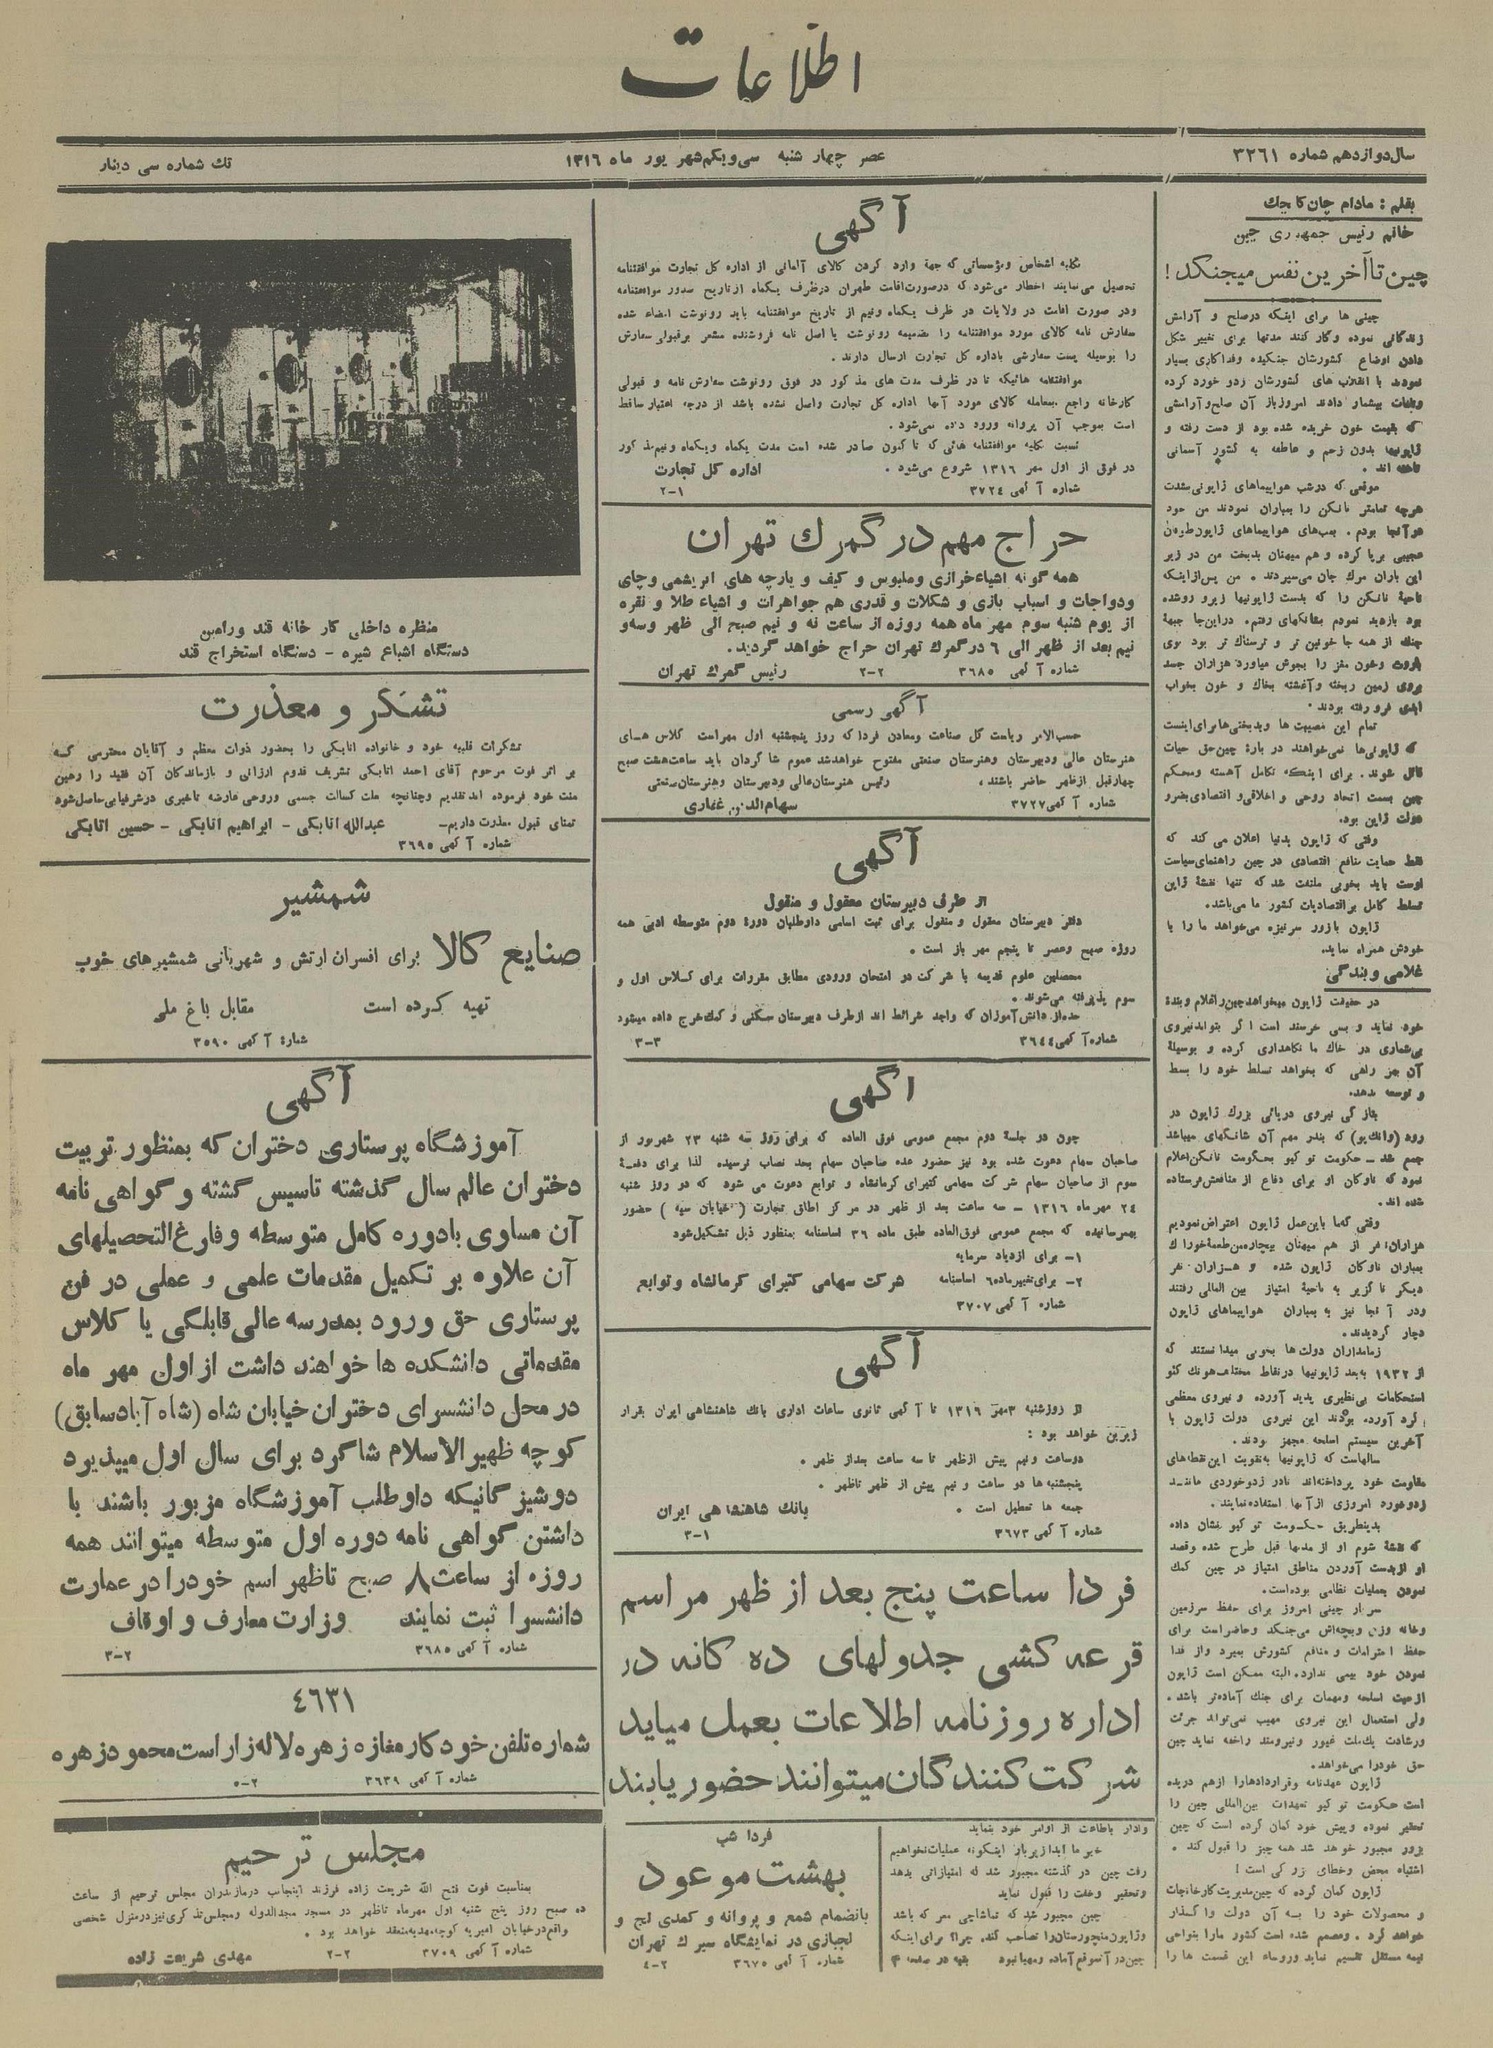 اطلاعات
سال دوازدهم شماره ۳۲۶۱
عصر چهار شنبه سی‌و‌یکم شهریور ماه ۱۳۱۶
تك شماره سی دینار
بقلم : مادام چان کایچك
خانم رئیس جمهوری چین
چین تا آخرین نفس میجنگد !
چینی ها برای اینکه درصلح و آرامش
زندگانی نموده و کار کنند مدتها برای تغییر شکل
دادن اوضاع کشورشان جنگیده و فداکاری بسیار
نمودند با انقلاب های کشورشان زدو خورد کرده
وتلفات بیشمار دادند امروز باز آن صلح و آرامشی
که بقیمت خون خریده شده بود از دست رفته و
ژاپونیها بدون رحم و عاطفه به کشور آسمانی
تاخته اند .
موقعی که درشب هواپیماهای ژاپونی بشدت
هرچه تمامتر نانکن را بمباران نمودند من خود
در آنجا بودم . بمب‌های هواپیماهای ژاپون طوفان
عجیبی برپا کرده و هم میهنان بدبخت من در زیر
این باران مرك جان می‌سپردند . من پس از اینکه
ناحیهٔ نانکن را که بدست ژاپونیها زیر و رو شده
بود بازدید نمودم بشانگهای رفتم . در این‌جا جبههٔ
جنك از همه جا خونین تر و ترسناك تر بود بوی
باروت وخون مغز را بجوش میاورد هزاران جسد
بروی زمین ریخته و آغشته بخاك و خون بخواب
ابدی فرو رفته بودند .
تمام این مصیبت ها و بدبختی‌ها برای اینست
که ژاپونی‌ها نمی‌خواهند در بارهٔ چین حق حیات
قائل شوند . برای اینکه تکامل آهسته ومحکم
چین بسمت اتحاد روحی و اخلاقی و اقتصادی بضرر
دولت ژاپن بود.
وقتی که ژاپون بدنیا اعلان می کند که
فقط حمایت منافع اقتصادی در چین راهنمای سیاست
اوست باید بخوبی ملتفت شد که تنها نقشهٔ ژاپن
تسلط کامل بر اقتصادیات کشور ما می‌باشد.
ژاپون بازور سرنیزه می‌خواهد ما را با
خودش همراه نماید.
غلامی و بندگی
در حقیقت ژاپون میخواهد چین را غلام و بندهٔ
خود نماید و بسی خرسند است اگر بتواند نیروی
بی‌شماری در خاك ما نگاهداری کرده و بوسیلهٔ
آن بهر راهی که بخواهد تسلط خود را بسط
و توسعه بدهد.
بتازگی نیروی دریائی بزرك ژاپون در
رود (وانك‌پو) که بندر مهم آن شانگهای میباشد
جمع شد ـ حکومت توکیو بحکومت نانکن اعلام
نمود که ناوکان او برای دفاع از منافعش فرستاده
شده اند.
وقتی که‌ما باین‌عمل ژاپون اعتراض نمودیم
هزاران نفر از هم میهنان بیچاره‌من طعمهٔ خوراك
بمباران ناوکان ژاپون شده و هزاران نفر
دیگر ناگزیر به ناحیهٔ امتیاز بین المللی رفتند
ودر آنجا نیز به بمباران هواپیماهای ژاپون
دچار گردیدند.
زمامداران دولت‌ها بخوبی میدانستند که
از ۱۹۳۲ به‌بعد ژاپونیها در نقاط مختلف هونك کئو
استحکامات بی‌نظیری پدید آورده و نیروی معظمی
گرد آورده بودند این نیروی دولت ژاپون با
آخرین سیستم اسلحه مجهز بودند .
سالهاست که ژاپونیها بتقویت این نقطه‌های
مقاومت خود پرداخته‌اند تا در زدوخوردی مانند
زدوخورد امروزی از آنها استفاده نمایند .
بدینطریق حکومت توکیو نشان داده
که نقشهٔ شوم او از مدتها قبل طرح شده وقصد
او از بدست آوردن مناطق امتیاز در چین کمك
نمودن بعملیات نظامی بوده‌است.
سرباز چینی امروز برای حفظ سرزمین
وخانه وزن وبچه‌اش می‌جنگد وحاضر است برای
حفظ احترامات و منافع کشورش بمیرد و از فدا
نمودن خود بیمی ندارد. البته ممکن است ژاپون
از حیث اسلحه و مهمات برای جنك آماده‌تر باشد .
ولی استعمال این نیروی مهیب نمی‌تواند جرئت
ورشادت یك‌ملت غیور و نیرومند را خفه نماید چین
حق خودرا می‌خواهد.
ژاپون عهدنامه وقراردادهارا ازهم دریده
است حکومت توکیو تعهدات بین‌المللی چین را
تحقیر نموده و پیش خود کمان کرده است که چین
بزور مجبور خواهد شد همه چیز را قبول کند .
اشتباه محض وخطای بزرگی است !
ژاپون گمان کرده که چین مدیریت کارخانجات
و محصولات خود را بسه آن دولت واگذار
خواهد کرد . ومصمم شده است کشور مارا بنواحی
نیمه مستقل تقسیم نماید وروساء این قسمت ها را
وادار باطاعت از اوامر خود بنماید
خیر ما ابدا زیربار اینگونه عملیات نخواهیم
رفت چین در گذشته مجبور شد که امتیازاتی بدهد
وتحقیر وخفت را قبول نماید
چین مجبور شد که تماشاچی سحر که باشد
وژاپون منچورستان‌را تصاحب کند. چرا؟ برای اینکه
چین‌در آنموقع آماده و مهیا نبود بقیه در صفحه ۴
آگهی
بکلیه اشخاص و مؤسساتی که جهة وارد کردن کالای آلمانی از اداره کل تجارت موافقتنامه
تحصیل می‌نمایند اخطار می‌شود که در صورت اقامت طهران در ظرف یکماه از تاریخ صدور موافقتنامه
ودر صورت اقامت در ولایات در ظرف یکماه ونیم از تاریخ موافقتنامه باید رونوشت امضاء شده
سفارش نامه کالای مورد موافقتنامه را بضمیمه رونوشت یا اصل نامه فروشنده مشعر برقبولی سفارش
را بوسیله پست سفارشی باداره کل تجارت ارسال دارند .
موافقتنامه هائیکه تا در ظرف مدت های مذکور در فوق رونوشت سفارش نامه و قبولی
کارخانه راجع بمعامله کالای مورد آنها اداره کل تجارت واصل نشده باشد از درجه اعتبار ساقط
است بموجب آن پروانه ورود داده نمی‌شود .
نسبت بکلیه موافقتنامه هائی که تاکنون صادر شده است مدت یکماه ویکماه ونیم مذکور
در فوق از اول مهر ۱۳۱۶ شروع می‌شود . اداره کل تجارت
شماره آگهی ۳۷۲٤ ۲-۱
حراج مهم در گمرك تهران
همه گونه اشیاء خرازی وملبوس و کیف و پارچه های ابریشمی وچای
ودواجات و اسباب بازی و شکلات و قدری هم جواهرات و اشیاء طلا و نقره
از یوم شنبه سوم مهر ماه همه روزه از ساعت نه و نیم صبح الی ظهر وسه‌و
نیم بعد از ظهر الی ٦ در گمرك تهران حراج خواهد گردید.
شماره آگهی ۳٦۸٥ ۲-۲ رئیس گمرك تهران
آگهی رسمی
حسب‌الامر ریاست کل صناعت ومعادن فردا که روز پنجشنبه اول مهر است کلاس های
هنرستان عالی ودبیرستان وهنرستان صنعتی مفتوح خواهد شد عموم شاگردان باید ساعت هشت صبح
چهار قبل از ظهر حاضر باشند . رئیس هنرستان عالی ودبیرستان وهنرستان صنعتی
شماره آگهی ۳۷۲۷ سهام‌الدین غفاری
آگهی
از طرف دبیرستان معقول و منقول
دفتر دبیرستان معقول و منقول برای ثبت اسامی داوطلبان دورهٔ دوم متوسطه ادبی همه
روزه صبح وعصر تا پنجم مهر باز است .
محصلین علوم قدیمه با شرکت در امتحان ورودی مطابق مقررات برای کلاس اول و
سوم پذیرفته می‌شوند .
عده‌از دانش‌آموزان که واجد شرائط اند ازطرف دبیرستان سکنی و کمك‌خرج داده میشود
شماره آگهی ۳٦٤٤ ۳-۳
آگهی
چون در جلسهٔ دوم مجمع عمومی فوق العاده که برای روز سه شنبه ۲۳ شهریور از
صاحبان سهام دعوت شده بود نیز حضور عده صاحبان سهام بحد نصاب نرسیده لذا برای دفعهٔ
سوم از صاحبان سهام شرکت سهامی کتیرای کرمانشاه و توابع دعوت می شود که دو روز شنبه
۲٤ مهر ماه ۱۳۱٦ ـ سه ساعت بعد از ظهر در مرکز اطاق تجارت (خیابان سپه) حضور
بهمرسانیده که مجمع عمومی فوق‌العاده طبق ماده ۳٦ اساسنامه بمنظور ذیل تشکیل‌شود
۱ـ برای ازدیاد سرمایه
۲ـ برای تغییر ماده٦ اساسنامه شرکت سهامی کتیرای کرمانشاه وتوابع
شماره آگهی ۳۷۰۷
آگهی
از روزشنبه ۳مهر ۱۳۱٦ تا آگهی ثانوی ساعات اداری بانك شاهنشاهی ایران بقرار
زیرین خواهد بود :
دوساعت ونیم پیش ازظهر تا سه ساعت بعد از ظهر .
پنجشنبه ها دو ساعت و نیم پیش از ظهر تاظهر .
جمعه ها تعطیل است . بانك شاهنشاهی ایران
شماره آگهی ۳٦۷۳ ۳-۱
فردا ساعت پنج بعد از ظهر مراسم
قرعه کشی جدولهای ده گانه در
اداره روزنامه اطلاعات بعمل میاید
شرکت کنندگان میتوانند حضور یابند
فردا شب
بهشت موعود
بانضمام شمع و پروانه و کمدی لج و
لجبازی در نمایشگاه سیرك تهران
شماره آگهی ۳٦۷٥ ٤-۲
منظره داخلی کارخانه قند ورامین
دستگاه اشباع شیره - دستگاه استخراج قند
تشکر و معذرت
تشکرات قلبیه خود و خانواده اتابکی را بحضور ذوات معظم و آقایان محترمی که
بر اثر فوت مرحوم آقای احمد اتابکی تشریف قدوم ارزانی و بازماندگان آن فقید را رهین
منت خود فرموده اند تقدیم وچنانچه علت کسالت جسمی وروحی عارضه تاخیری درشرفیابی حاصل‌شود
تمنای قبول معذرت داریم- عبدالله اتابکی - ابراهیم اتابکی - حسین اتابکی
شماره آگهی ۳٦۹٥
شمشیر
صنایع کالا برای افسران ارتش و شهربانی شمشیرهای خوب
تهیه کرده است مقابل باغ ملی
شمارهٔ آگهی ۳٥۹۰
آگهی
آموزشگاه پرستاری دختران که بمنظور تربیت
دختران عالم سال گذشته تاسیس گشته و گواهی نامه
آن مساوی بادوره کامل متوسطه وفارغ‌التحصیلهای
آن علاوه بر تکمیل مقدمات علمی و عملی در فن
پرستاری حق ورود بمدرسه عالی قابلگی یا کلاس
مقدماتی دانشکده ها خواهند داشت از اول مهر ماه
در محل دانشسرای دختران خیابان شاه (شاه آباد سابق)
کوچه ظهیرالاسلام شاگرد برای سال اول میپذیرد
دوشیزگانیکه داوطلب آموزشگاه مزبور باشند با
داشتن گواهی نامه دوره اول متوسطه میتوانند همه
روزه از ساعت ۸ صبح تاظهر اسم خودرا در عمارت
دانشسرا ثبت نمایند وزارت معارف و اوقاف
شماره آگهی ۳٦۸٥ ۳-۲
٤٦۳۱
شماره تلفن خودکار مغازه زهره لاله زار است محمود زهره
شماره آگهی ۳٦۳۹ ٥-۲
مجلس ترحیم
بمناسبت فوت فتح الله شریعت زاده فرزند اینجانب درمازندران مجلس ترحیم از ساعت
ده صبح روز پنج شنبه اول مهرماه تاظهر در مسجد مجدالدوله ومجلس‌تذکری نیز درمنزل شخصی
واقع در خیابان امیریه کوچه مهدیه منعقد خواهد بود .
شماره آگهی ۳۷۰۹ ۲-۲ مهدی شریعت زاده